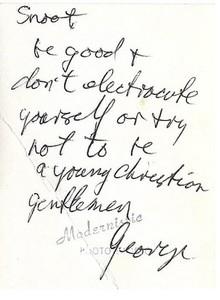 Snoot,
be good &
don't electrocute
yourself or try
not to be
a young Christian
gentlemen
Modernistic
PHOTO
George